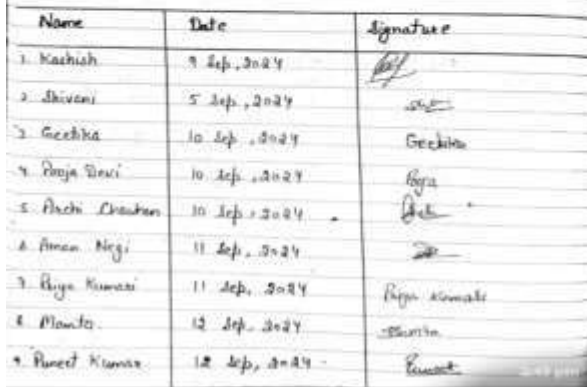 Name Date Signature
1. Kashish 9 Sep, 2024
2. Shivani 5 Sep, 2024
3. Geetika 10 Sep, 2024 Geetika
4. Pooja Devi 10 Sep, 2024 Pooja
5. Chauhan 10 Sep, 2024
6. Aman Negi 11 Sep, 2024
7. Priya Kumari 11 Sep, 2024 Priya Kumari
8. Mamta 12 Sep, 2024 Mamta
9. Puneet Kumar 12 Sep, 2024 Puneet